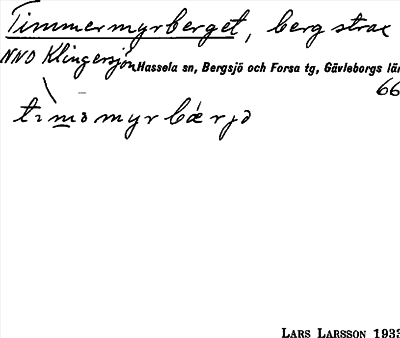 Timmermyrberget, berg strax
NNO Klingersjön Hassela sn, Bergsjö och Forsa tg, Gävleborgs län
66
tımɜmyrbárjə
LARS LARSSON 1933